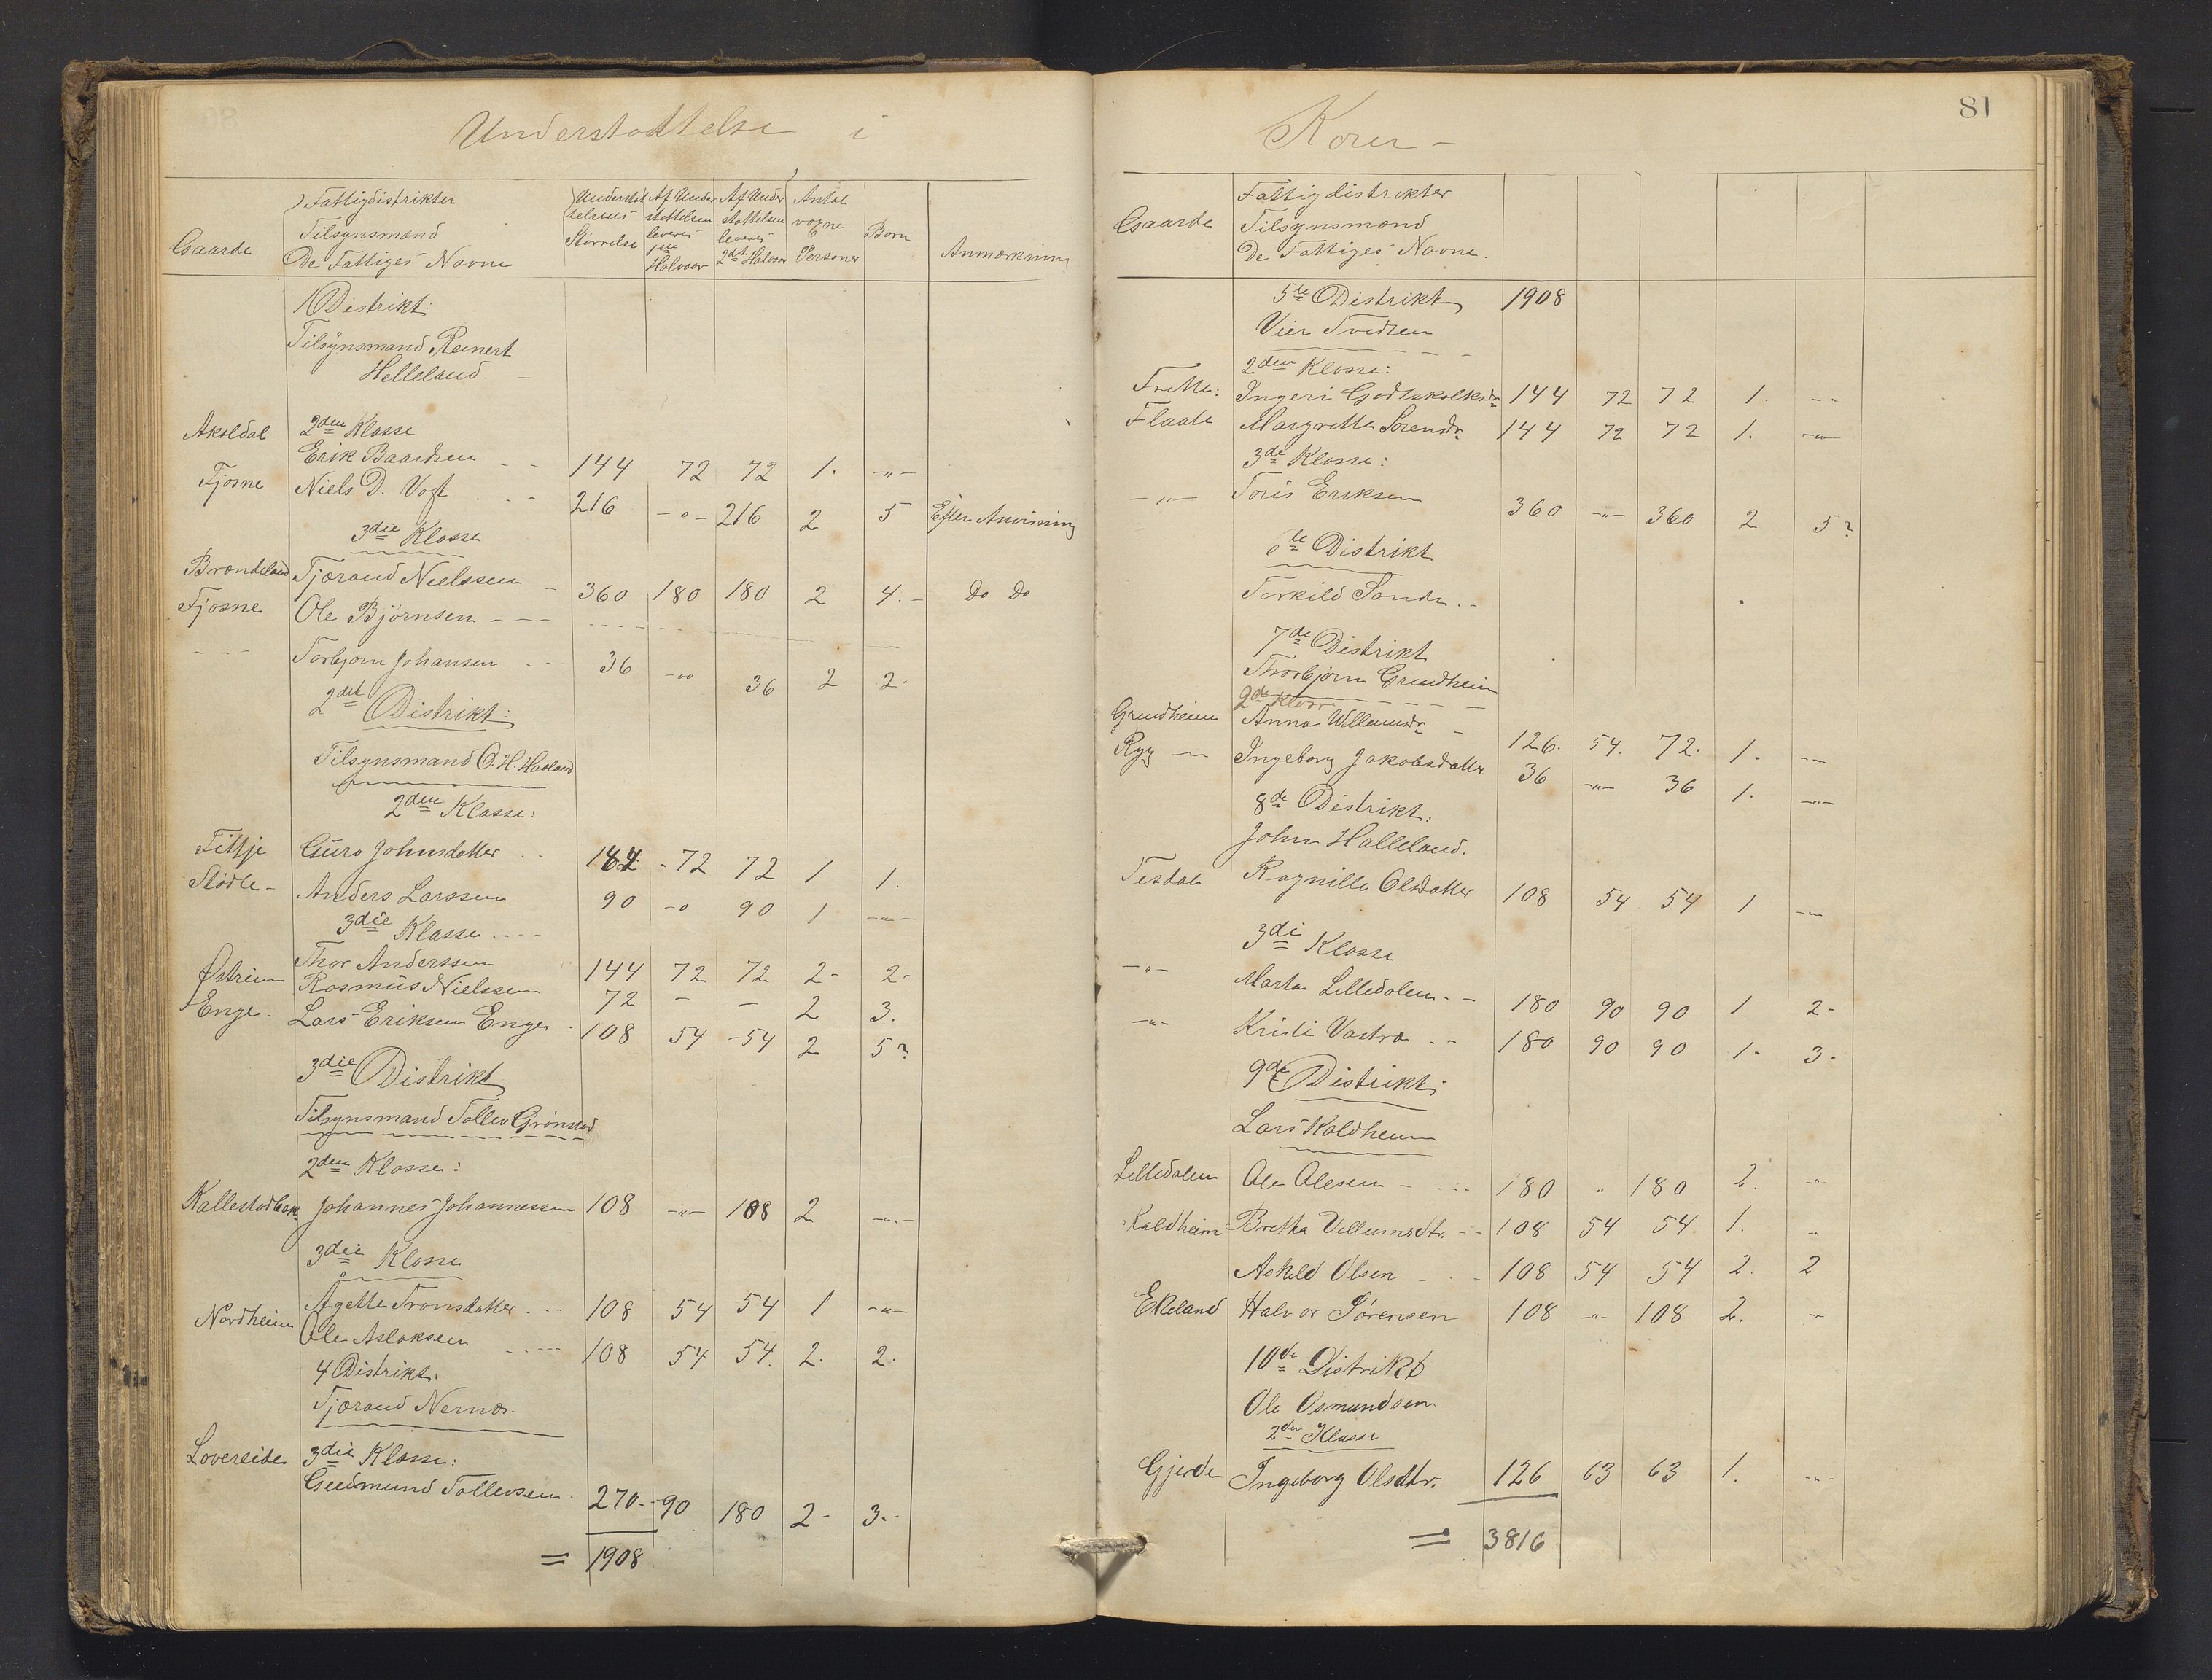 Understøttelse i
Gaarde
Fattigdistrikter
Tilsynsmænd
De Fattiges Navne
Understøt
telsens
Størrelse
Af Under
støttelsen
leveres
1ste
Halvaar
Af Under
støttelsen
leveres
2det Halvaar
Antal
voxne
Personer
Børn
Anmærkning
1 Distrikt:
Tilsynsmand Reinert
Helleland.
2den Klasse
Aksldal Erik Baardsen - - 144 72 72 1. -"-
Fjøsne Niels D. Vogt . . - 216 -o- 216 2 5 Efter Anvisning
3die Klasse
Brændeland Tjærand Nielssen - 360 180 180 2 4.- Do Do
Fjøsne Ole Bjørnsen - —
- - - Torbjørn Johansen - - 36 -"- 36 2 2.
2det Distrikt:
Tilsynsmand O. H. Haaland
2den Klasse:
Fittje Guro Johnsdatter . . 144 - 72 72 1 1.
Stødle - Anders Larssen 90 -o 90 1 -"-
3die Klasse . . - -
Thor Anderssen 144 72 72 2- 2-
Østreim Rasmus Nielssen 72 - - 2 3.
Enge. Lars Eriksen Enge . 108 54 -54 2 5?
3die Distrikt
Tilsynsmand Tollev Grønstad
2den Klasse:
Kallestadbak Johannes Johannessen 108 -"- 108 2 -"-
3die Klasse
Ågetta Tronsdatter . - 108 54 54 1 -"-
Nordheim Ole Aslaksen - - - 108 54 54. 2. 2.
4 Distrikt.
Tjærand Nernæs.
Lovereide 3die Klasse:
Gudmund Tollevsen . 270- -90 180 2- 3.-
= 1908
81
Korn -
Gaarde
Fattigdistrikter
Tilsynsmænd
De Fattiges Navne.
5te Distrikt 1908
Vier Tvedten
2den Klasse:
Frette: Ingeri Godtskalksdr 144 72 72 1. - -
Flaate Margretta Sørensdr. 144 72 72 1. -"-
3die Klasse:
-"- Toris Eriksen 360 -"- 360 2 5?
6te Distrikt
Torkild Sande. -
7de Distrikt
Thorbjørn Grindheim
2de Klasse
Grindheim Anna Willumsdr - 126. 54. 72. 1. -"-
Ryg — Ingeborg Jakobsdatter 36 -"- 36 1. -"-
8de Distrikt:
John Halleland.
Tesdal Ragnille Olsdatter 108 54 54 1 -"-
3di Klasse
-"- Marta Lilledalen. - 180 90 90 1 2-
-"- Kristi Vastra . - 180 90 90 1. 3.
9de Distrikt:
Lars Kaldheim
Lilledalen Ole Olesen - . - - 180 " 180 2. -"-
Kaldheim Bretha Villumsdtr. - - 108 54 54 1. -"-
Askild Olsen - . - 108 54 54 2. 2
Ekeland Halvor Sørensen 108 -"- 108 2. -"-
10de Distrikt
Ole Osmundsen
2den Klasse
Gjerde Ingeborg Olsdtr. 126 63 63 1. -"-
= 3816